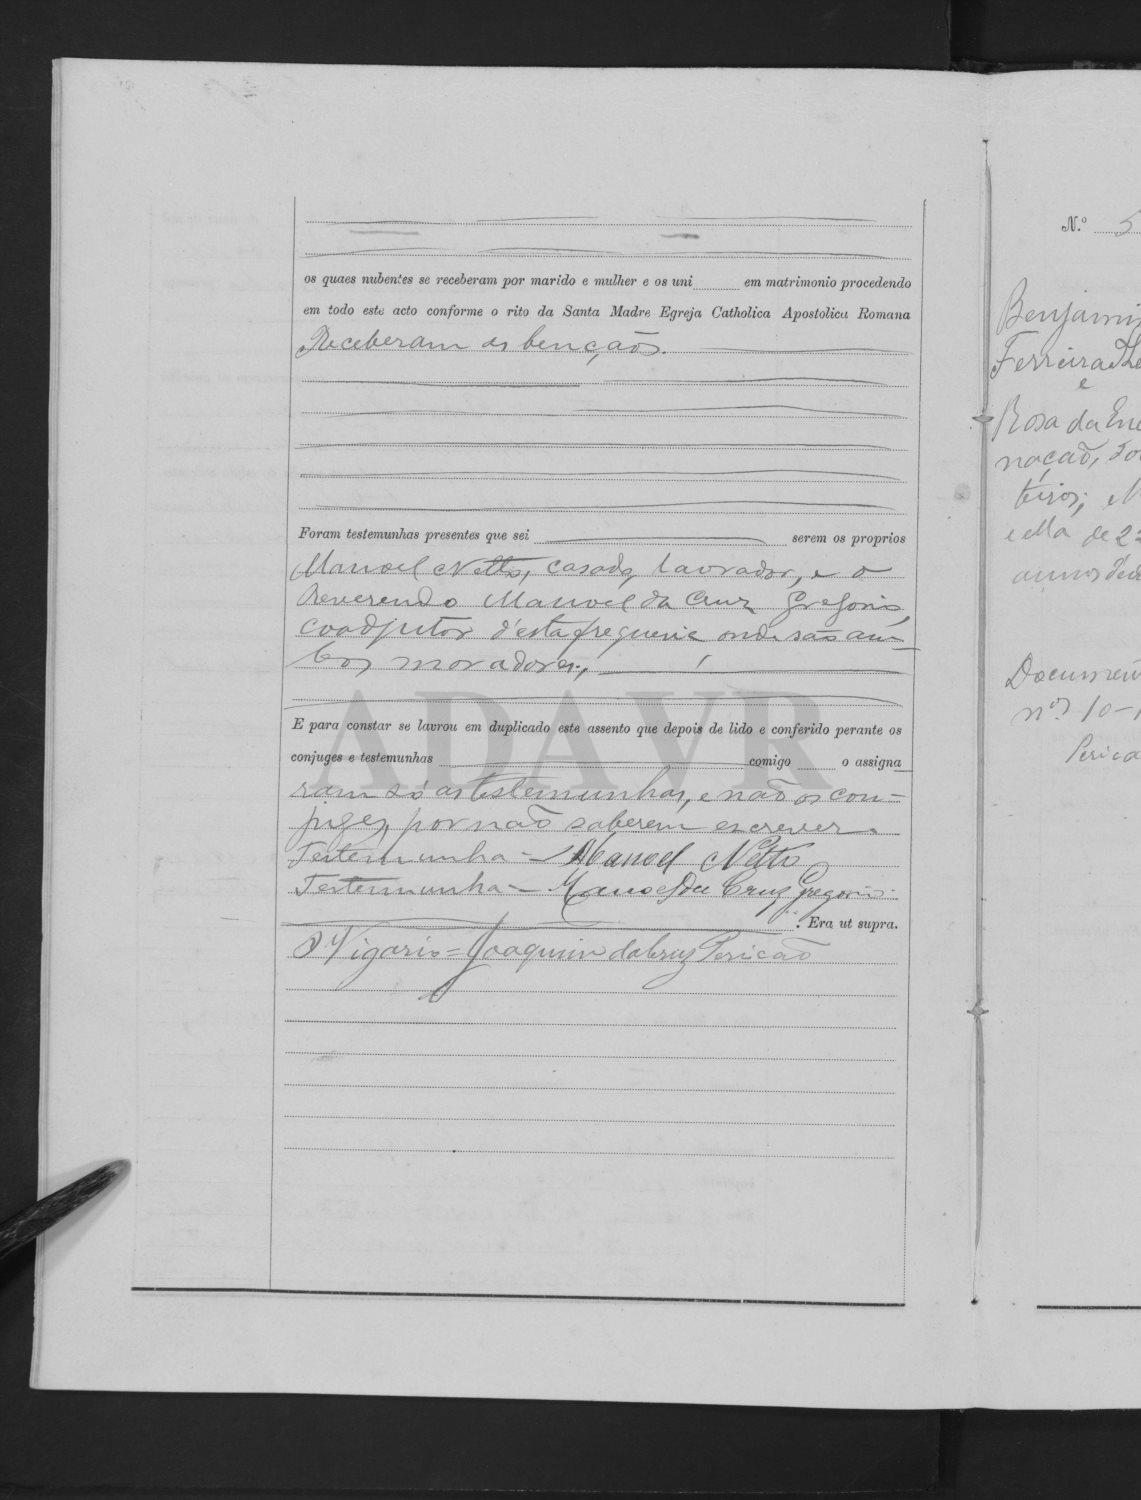 os quaes nubentes se receberam por marido e mulher e os uni em matrimonio procedendo
em todo este acto conforme o rito da Santa Madre Egreja Catholica Apostolica Romana
Receberam as bençãos.
Foram testemunhas presentes que sei serem os proprios
Manoel Netto, casado, lavrador, e o
Reverendo Manoel da Cruz Gregorio,
coadjutor d'esta freguezia onde são am-
bos moradores.,
ADAVR
E para constar se lavrou em duplicado este assento que depois de lido e conferido perante os
conjuges e testemunhas comigo o assigna
ram só as testemunhas, e não os con-
juges, por não saberem escrever.
Testemunha - Manoel Netto
Testemunha - Manoel da Cruz Gregorio.
. Era ut supra.
O Vigario = Joaquim da Cruz Pericão
N.º 5
Benjamin
Ferreira
e
Rosa da En
nação, Sol
teiros;
e ella de 22
annos
Documen
nos 10-1
Perica